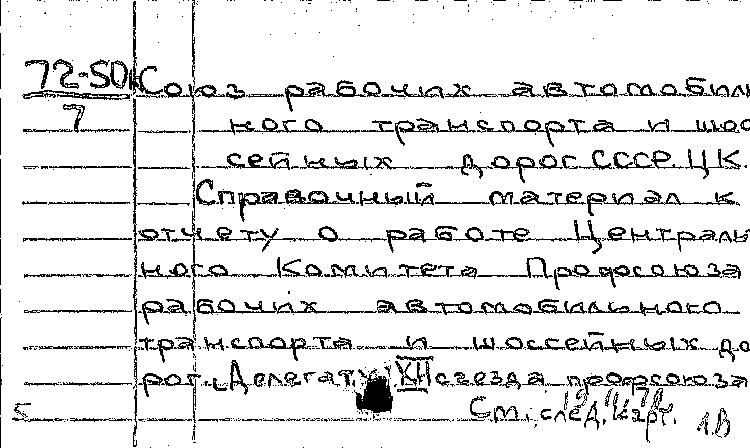 72-50к Союз рабочих автомобиль
7 ного транспорта и шос
сейных дорог СССР. ЦК.
Справочный материал к
отчету о работе Централь
ного Комитета Профсоюза
рабочих автомобильного
транспорта и шоссейных до
рог. Делегату XII съезда профсоюза
См. след. карт.